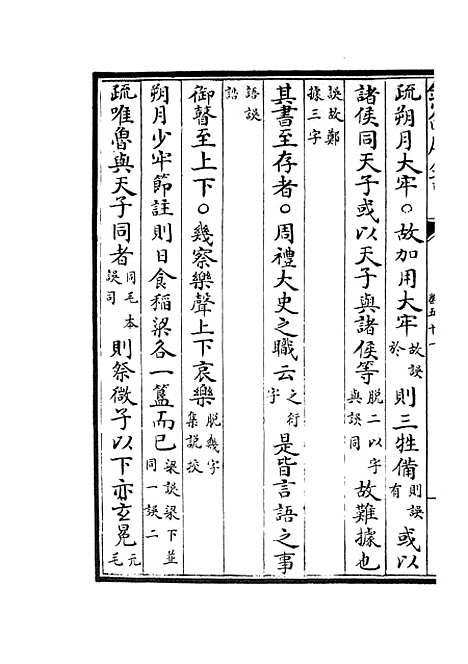 疏朔月大牢○故加用大牢故誤於則三牲備則誤有或以
諸侯同天子或以天子與諸侯等脫二以字與誤同故難據也
誤故鄭據三字
其書至存者○周禮大史之職云之衍字是皆言語之事
語誤誥
御瞽至上下○幾察樂聲上下哀樂脫幾字集說挍
朔月少牢節註則日食稻粱各一簋而已粱誤梁下並同一誤二
疏唯魯與天子同者同毛本誤司則祭微子以下亦玄冕元毛
卷五十一